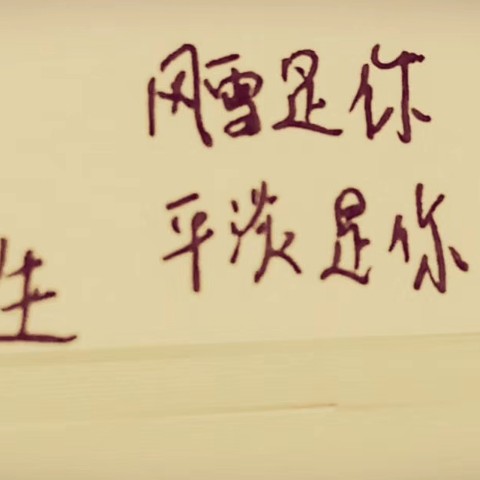 风雪是你
平淡是你
生